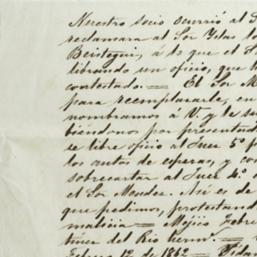 Nuestro socio ocurrió al S
reclamara al Sor Yslas lo
Beistegui, á lo que el S
librando un oficio, que h
contestado. — El Sor M
para reemplazarle, en
nombramos á V. y le su
biéndonos por presentad
se libre oficio al Juez 5º p
los autos de esperas, y con
sobrecartar al Juez 4º d
el Sor Mendez. Asi es de
que pedimos, protestand
malicia — Méjico Febre
tinez del Rio herm.s —
Febro 12 de 1842 —